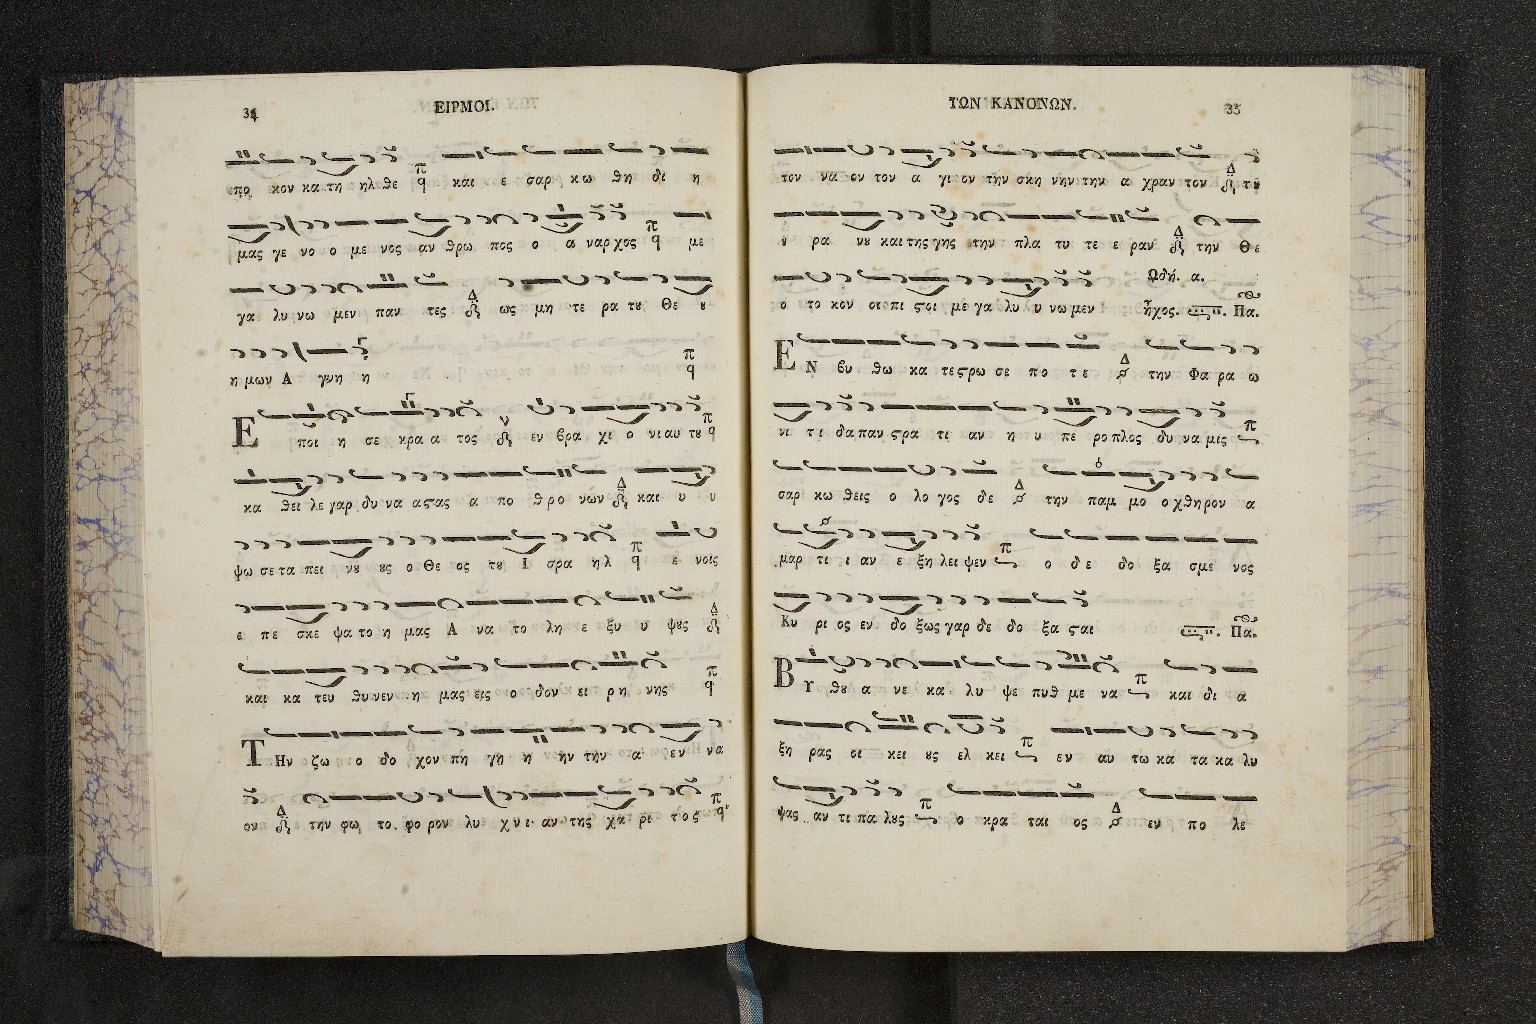 34
ΕΙΡΜΟΙ.
πο κον κα τη ηλ θε και ε σαρ κω θη δι η
μας γε νο ο με νος αν θρω πος ο α ναρ χος με
γα λυ νω μεν παν τες ως μη τε ρα τȣ Θε ȣ
η μων Α γνη η
Ε ποι η σε κρα α τος εν βρα χι ο νι αυ τȣ
κα θει λε γαρ δυ να α ϛας α πο θρο νων και υ υ
ψω σε τα πει νȣ ȣς ο Θε ος τȣ Ι σρα ηλ ε νοις
ε πε σκε ψα το η μας Α να το λη ε ξυ υ ψȣς
και κα τευ θυ νεν η μας εις ο δον ει ρη νης
Την ζω ο δο χον πη γη η ην την α εν να
ον την φω το φο ρον λυ χνι αν της χα ρι τος
ΤΩΝ ΚΑΝΟΝΩΝ.
35
τον να ον τον α γι ον την σκη νην την α χραν τον τȣ
ȣ ρα νȣ και της γης την πλα τυ τε ε ραν την Θε
Ωδή. α.
ο το κον οι πι ϛοι με γα λυ υ νω μεν ἦχος. Πα.
ΕΝ βυ θω κα τε ϛρω σε πο τε την Φα ρα ω
νι τι δα παν ϛρα τι αν η υ πε ρο πλος δυ να μις
σαρ κω θεις ο λο γος δε την παμ μο ο χθη ρον α
μαρ τι ι αν ε ξη λει ψεν ο δε δο ξα σμε νος
Κυ ρι ος εν δο ξως γαρ δε δο ξα ϛαι Πα.
ΒΥ θȣ α νε κα λυ ψε πυθ με να και δι α
ξη ρας οι κει ȣς ελ κει εν αυ τω κα τα κα λυ
ψας αν τι πα λȣς ο κρα ται ος εν πο λε